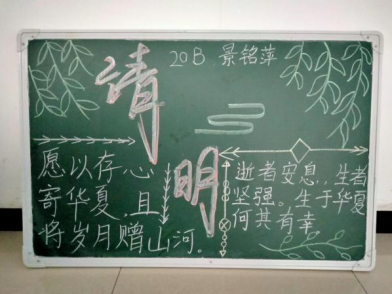 清明
20B 景铭萍
愿以存心
寄华夏,且
将岁月赠山河。
逝者安息,生者
坚强。生于华夏
何其有幸